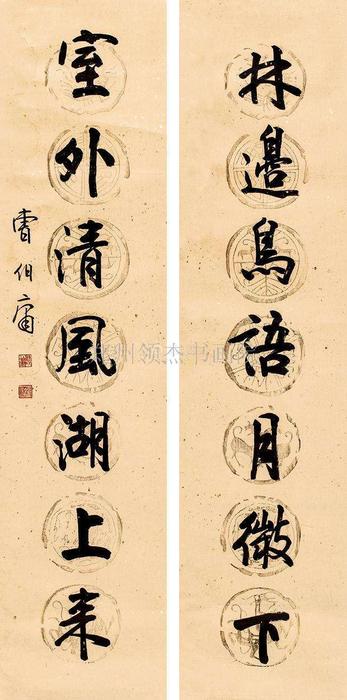 林邊鳥語月微下
室外清風湖上来
曹伯庸
州领杰书画